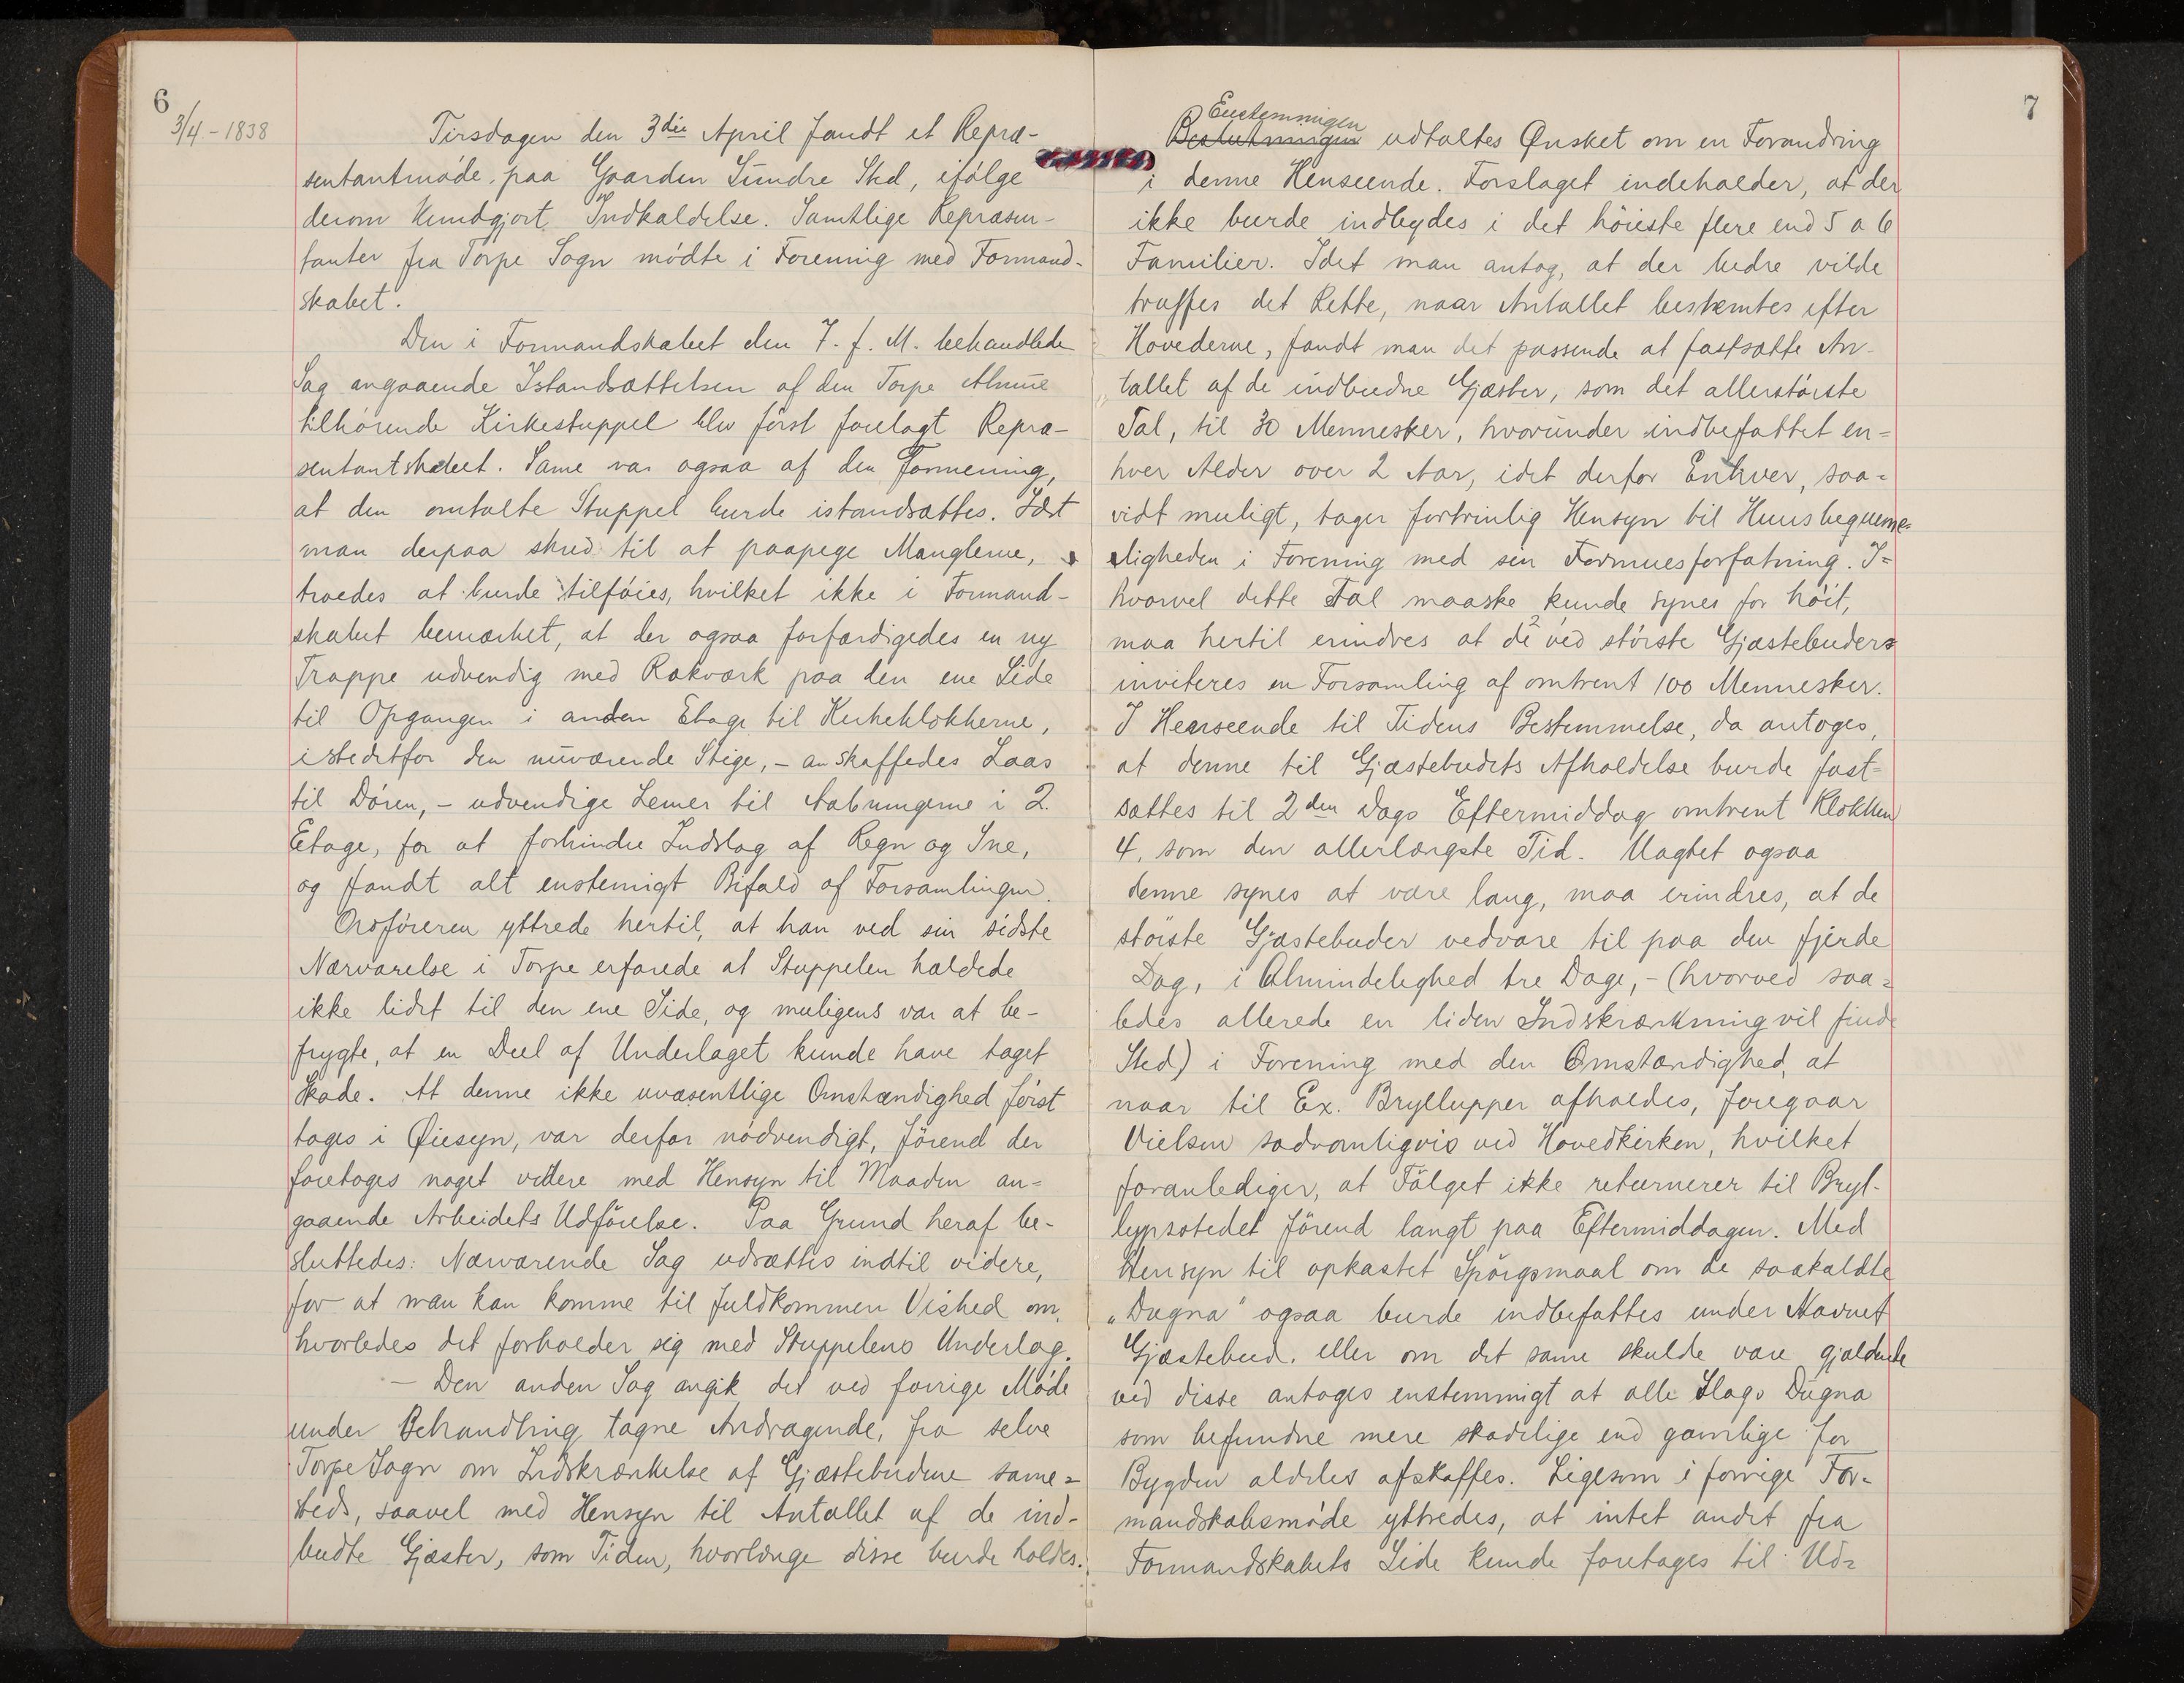 6
3/4 - 1838
Tirsdagen den 3die April fandt et Repræ-
sentantmøde paa Gaarden Søndre Sted, ifølge
derom Kundgjort Indkaldelse. Samtlige Repræsen-
tanter fra Torpe Sogn mødte i Forening med Formand-
skabet.
Den i Formandskabet den 7. f. M. behandlede
Sag angaaende Istandsættelsen af den Torpe Almue
tilhørende Kirkestuppel blev først forelagt Repræ-
sentantskabet. Same var ogsaa af den Formening,
at den omtalte Stuppel burde istandsættes. Idet
man derpaa skred til at paapege Manglerne,
troedes at burde tilføies, hvilket ikke i Formand-
skabet bemærket, at der ogsaa forfærdigedes en ny
Trappe udvendig med Rækværk paa den ene Side
til Opgangen i anden Etage til Kirkeklokkerne,
istedetfor den nuværende Stige, - anskaffedes Laas
til Døren, - udvendige Lemer til Aabningerne i 2.
Etage, for at forhindre Indslag af Regn og Sne,
og fandt alt enstemigt Bifald af Forsamlingen.
Ordføreren yttrede hertil, at han ved sin sidste
Nærværelse i Torpe erfarede at Stuppelen hældede
ikke lidet til den ene Side, og muligens var at be-
frygte, at en Deel af Underlaget kunde have taget
Skade. At denne ikke uvæsentlige Omstændighed først
tages i Øiesyn, var derfor nødvendigt, førend der
foretoges noget videre med Hensyn til Maaden an=
gaaende Arbeidets Udførelse. Paa Grund heraf be-
sluttedes: Nærværende Sag udsættes indtil videre,
for at man kan komme til fuldkommen Vished om,
hvorledes det forholder sig med Stuppelens Underlag.
- Den anden Sag angik det ved forrige Møde
under Behandling tagne Andragende, fra selve
Torpe Sogn om Indskrænkelse af Gjæstebudene same=
steds, saavel med Hensyn til Antallet af de ind-
budte Gjæster, som Tiden, hvorlænge disse burde holdes.
7
Enstemningen
Beslutningen udtaltes Ønsket om en Forandring
i denne Henseende. Forslaget indeholder, at der
ikke burde indbydes i det høieste flere end 5 a 6
Familier. Idet man antog, at der bedre vilde
træffes det Rette, naar Antallet bestemtes efter
Hovederne, fandt man det passende at fastsætte An-
tallet af de indbudne Gjæster, som det allerstørste
Tal, til 30 Mennesker, hvorunder indbefattet en=
hver Alder over 2 Aar, idet derfor Enhver, saa=
vidt muligt, tager fortrinlig Hensyn til Huusbequeme=
ligheden i Forening med sin Formuesforfatning. I=
hvorvel dette Tal maaske kunde synes for høit,
maa hertil erindres at de ved største Gjæstebuders
inviteres en Forsamling af omtrent 100 Mennesker.
I Henseende til Tidens Bestemmelse, da antoges,
at denne til Gjæstebudets Afholdelse burde fast=
sættes til 2den Dags Eftermiddag omtrent Klokken
4, som den allerlængste Tid. Uagtet ogsaa
denne synes at være lang, maa erindres, at de
største Gjæstebuder vedvare til paa den fjerde
Dag, i Almindelighed tre Dage, - (hvorved saa=
ledes allerede en liden Indskrænkning vil finde
Sted) i Forening med den Omstændighed, at
naar til Ex. Bryllupper afholdes, foregaar
Vielsen sædvanligvis ved Hovedkirken, hvilket
foranlediger, at Følget ikke returnerer til Bryl-
lypsstedet førend langt paa Eftermiddagen. Med
Hensyn til opkastet Spørgsmaal om de saakaldte
"Dugna" ogsaa burde indbefattes under Navnet
Gjæstebud. eller om det same skulde være gjældende
ved disse antages enstemmigt at alle Slags Dugna
som befundne mere skadelige end gavnlige for
Bygden aldeles afskaffes. Ligesom i forrige For=
mandskabsmøde yttredes, at intet andet fra
Formandskabets Side kunde foretages til Ud=